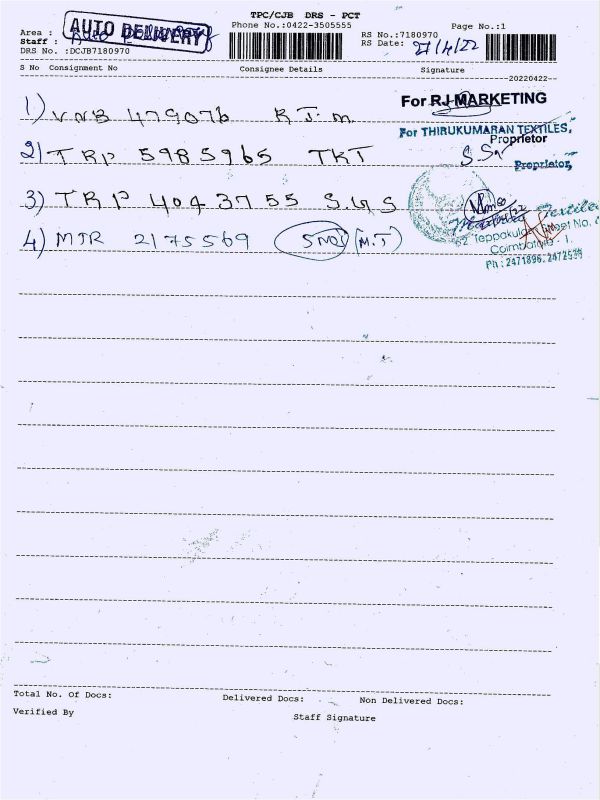 TPC/CJB DRS - PCT
Phone No.:0422-3505555
Page No.:1
Area :
AUTO DELIVERY
Staff :
RS No.:7180970
RS Date: 27/4/22
DRS No. :DCJB7180970
S No Consignment No Consignee Details Signature
--20220422--
1) VNB 479076 R.J.M. For RJ MARKETING
For THIRUKUMARAN TEXTILES,
Proprietor
2) TRP 5985965 TKT
Proprietor,
3) TRP 4043755 S.G.S
Textile
4) MTR 2175569 (M.T)
Coimbatore - 1.
Ph : 2471896, 2472539
Total No. Of Docs: Delivered Docs: Non Delivered Docs:
Verified By Staff Signature